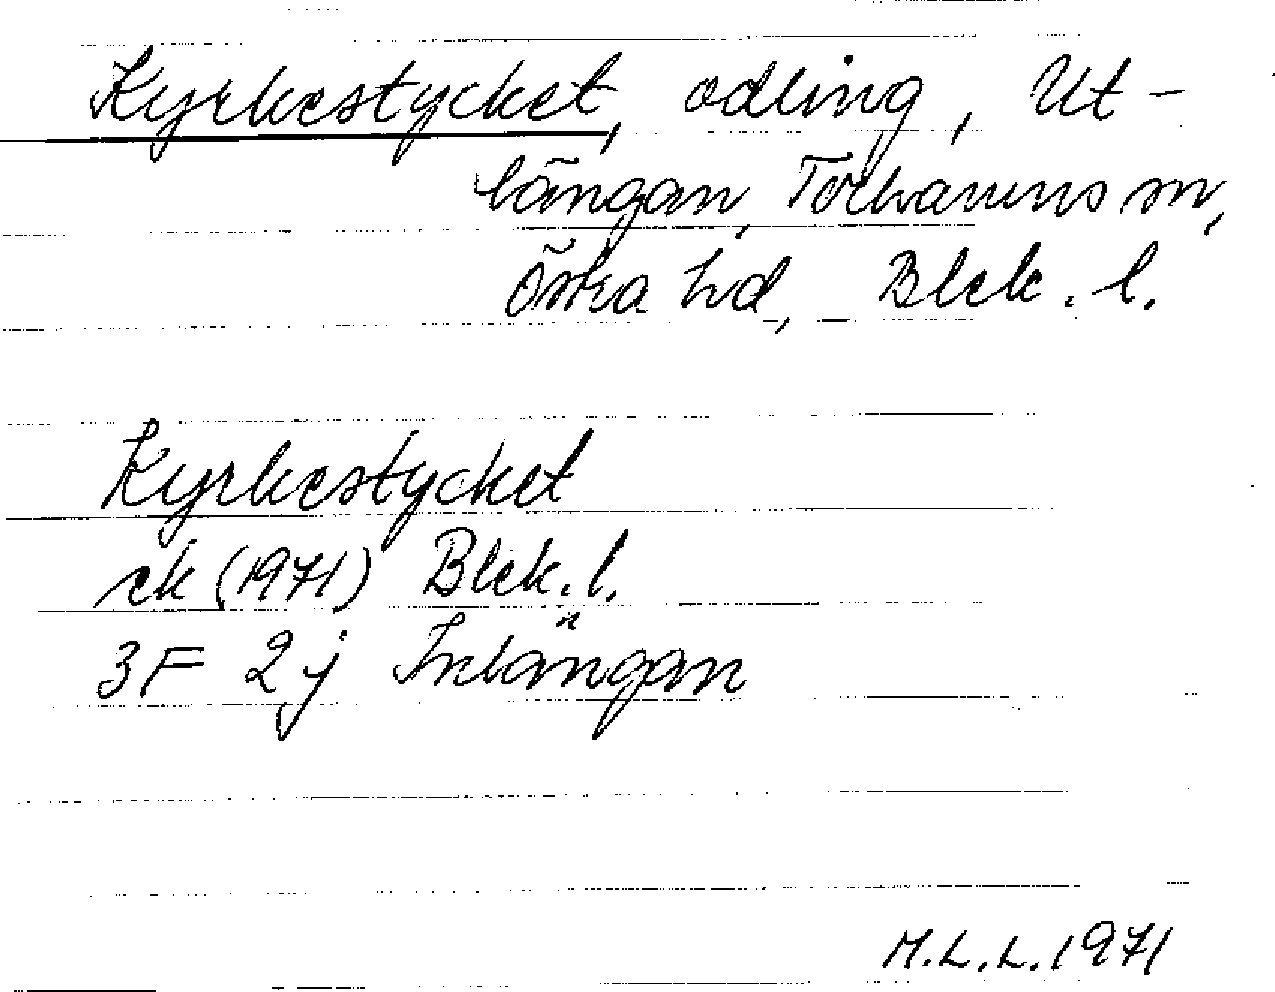 Kyrkestycket, odling, Ut-
längan, Torhamns sn,
Östra hd, Blek. l.
Kyrkestycket
ek (1971) Blek. l.
3F 2j Inlängan
M.L.L. 1971